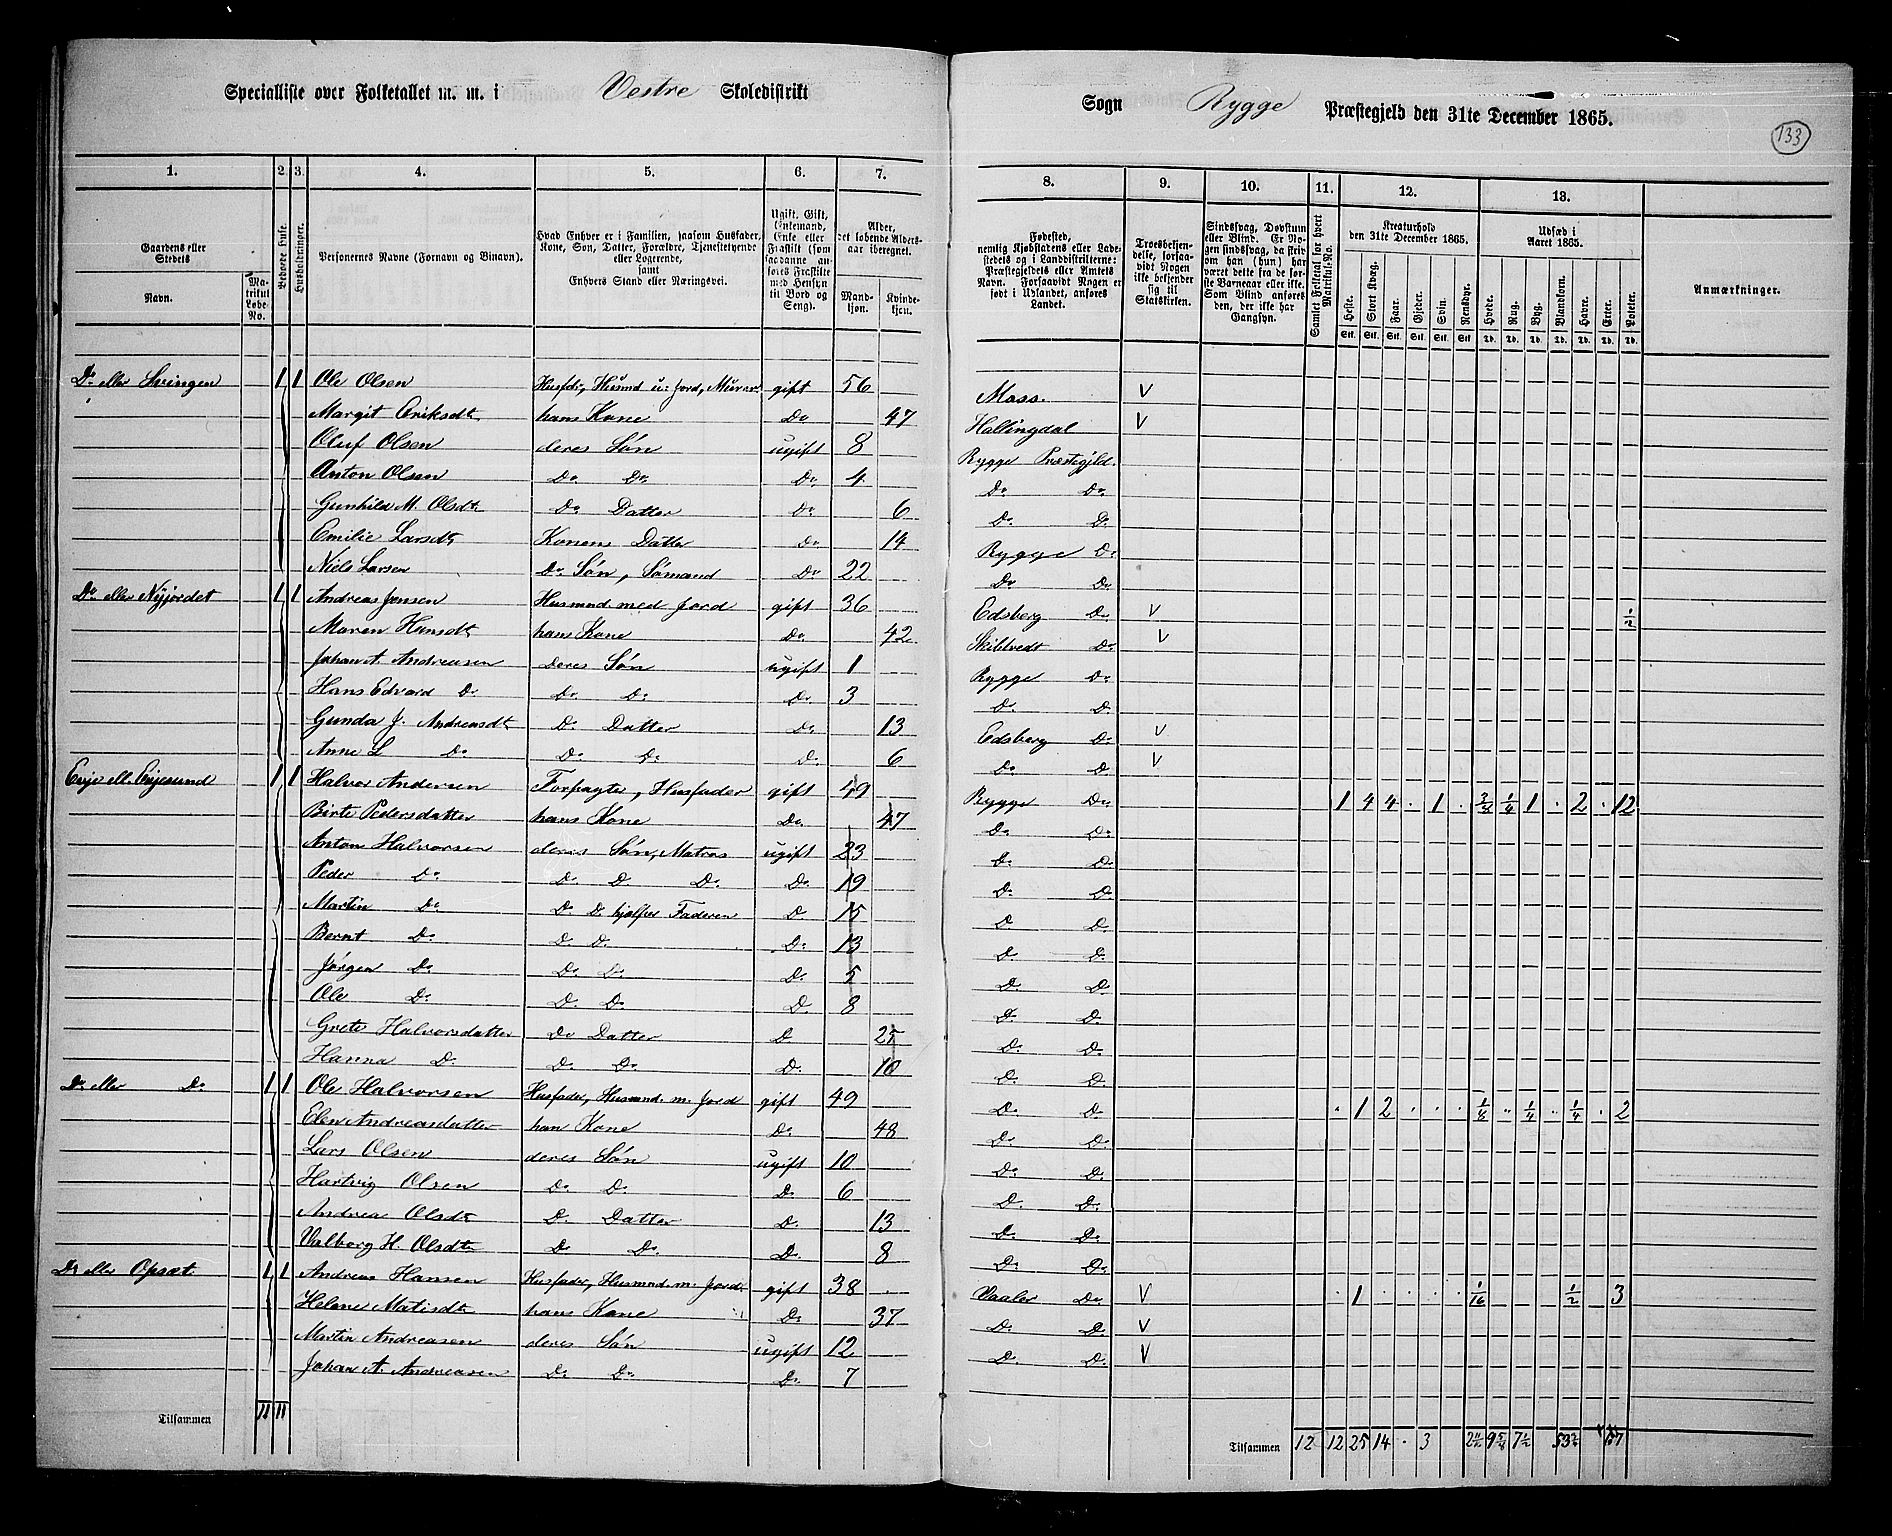 Specialliste over Folketallet m. m. i Vestre Skoledistrikt
Sogn Rygge Præstegjeld den 31te December 1865.
133
1. 2. 3. 4. 5. 6. 7. 8. 9. 10. 11. 12. 13.
Gaardens eller Stedets Navn.
Matrikul Løbe-No.
Beboede Huse.
Husholdninger.
Personernes Navne (Fornavn og Binavn).
Hvad Enhver er i Familien, saasom Husfader, Kone, Søn, Datter, Forældre, Tjenestetyende eller Logerende, samt Enhvers Stand eller Næringsvei.
Ugift, Gift, Enkemand, Enke eller Fraskilt (saasom saadanne anføres Fraskilte med Hensyn til Bord og Seng).
Alder, det løbende Aldersaar iberegnet.
Mandkjøn. Kvindekjøn.
Fødested, nemlig Kjøbstadens eller Ladestedets og i Landdistrikterne: Præstegjeldets eller Amtets Navn. Forsaavidt Nogen er født i Udlandet, anføres Landet.
Troesbekjendelse, forsaavidt Nogen ikke bekjender sig til Statskirken.
Sindssvag, Døvstum eller Blind. Er Nogen sindssvag, da hvis om han (hun) har været dette fra de første Barneaar eller ikke. Som Blind anføres den, der ikke har Gangsyn.
Samlet Folketal for hvert Matrikul-No.
Kreaturhold den 31te December 1865.
Heste. Stort Kvæg. Faar. Gjeder. Svin. Rensdyr.
Udsæd i Aaret 1865.
Hvede. Rug. Byg. Blandkorn. Havre. Erter. Poteter.
Anmærkninger.
Do eller Svingen 1 1 Ole Olsen Husfdr, Husmd u: Jord, Murer gift 56 Moss. V
Margit Eriksdt hans Kone Do 47 Hallingdal V
Oluf Olsen deres Søn ugift 8 Rygge Præstegjld.
Anton Olsen Do Do Do 4 Do Do
Gunhild M. Olsdt Do Datter Do 6 Do Do
Emilie Larsdt Konens Datter Do 14 Rygge Do
Niels Larsen Do Søn, Sømand Do 22 Do Do
Do eller Nyjordet 1 1 Andreas Jensen Husmnd. med Jord gift 36 Edsberg Do V 1/2
Maren Hansdt hans Kone Do 42 Skibtvedt Do V
Johan A. Andreasen deres Søn ugift 1 Rygge Do
Hans Edvard Do Do Do Do 3 Do Do
Gunda J. Andreasdt Do Datter Do 13 Edsberg Do V
Anne L Do Do Do Do 6 Do Do V
Evje ell. Evjesund 1 1 Halvor Andersen Forpagter, Husfader gift 49 Rygge Do 1 4 4 . 1 . 3/8 1/4 1 . 2 . 12
Birte Pedersdatter hans Kone Do 47 Do Do
Anton Halvorsen deres Søn, Matros ugift 23 Do Do
Peder Do Do Do Do Do 19 Do Do
Martin Do Do Do hjælper Faderen Do 15 Do Do
Bernt Do Do Do Do 13 Do Do
Jørgen Do Do Do Do 5 Do Do
Ole Do Do Do Do 8 Do Do
Grete Halvorsdatter Do Datter Do 25 Do Do
Hanna Do Do Do Do 10 Do Do
Do eller Do 1 1 Ole Halvorsen Husfader, Husmnd. m. Jord gift 49 Do Do . 1 2 . . . 1/8 " 1/4 .. 1/4 . 2
Elen Andreasdatter han Kone Do 48 Do Do
Lars Olsen deres Søn ugift 10 Do Do
Hartvig Olsen Do Do Do 6 Do Do
Andrea Olsdt Do Datter Do 13 Do Do
Valborg H. Olsdt Do Do Do 8 Do Do
Do eller Opsæt 1 1 Andreas Hansen Husfader, Husmnd. m. Jord gift 38 Vaaler Do V . 1 . . . . 1/16 1/2 3
Helene Matisdt hans Kone Do 37 Do Do V
Martin Andreasen deres Søn ugift 12 Do Do V
Johan A. Andreasen Do Do Do 7
Tilsammen 11 11
Tilsammen 12 12 25 14 . 3 7 1/2